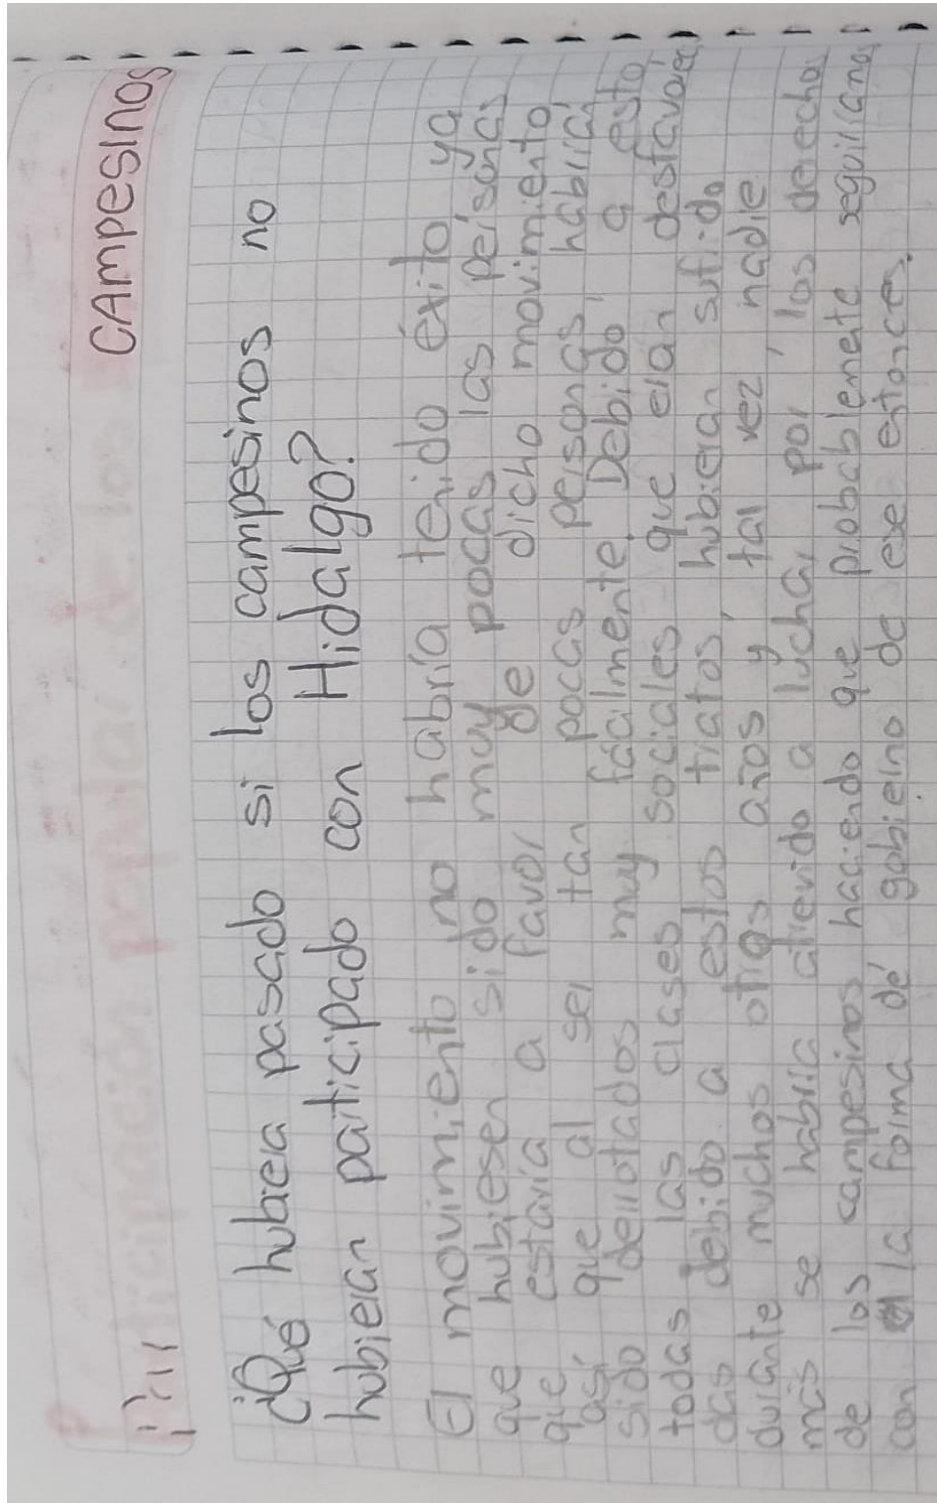 CAmpesinos
¿Qué hubiera pasado si los campesinos no
hubieran participado con Hidalgo?
El movimiento no habría tenido éxito ya
que hubiesen sido muy pocas las personas
que estaría a favor de dicho movimiento
así que al ser tan pocas personas, habría
sido derrotados muy fácilmente. Debido a esto
todas las clases sociales que eran desfavoreci
das debido a estos tratos, hubieran sufrido
durante muchos otros años y, tal vez, nadie
más se habría atrevido a luchar por los derechos
de los campesinos haciendo que probablemente seguiríamos
con la forma de gobierno de ese entonces.